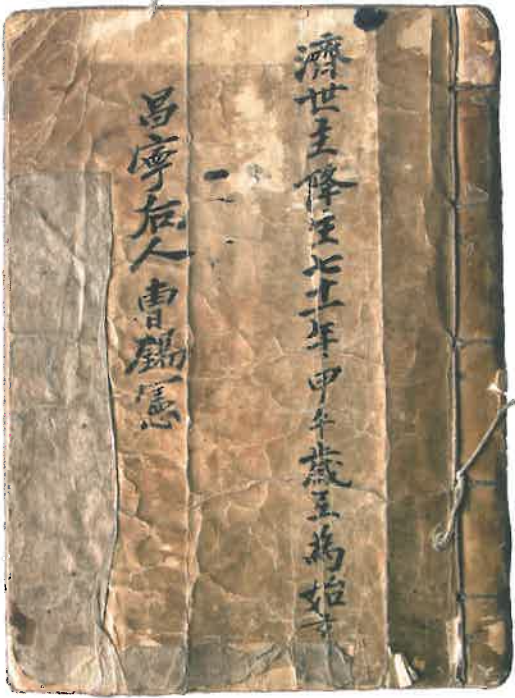 濟世主降生七十一年甲午歲爲始
昌寧后人曹錫憲